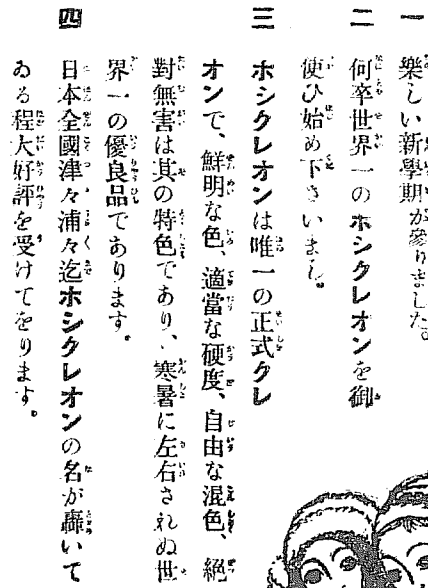 一 樂しい新學期が參りました。
二 何卒世界一のホシクレオンを御
使ひ始め下さいまし。
三 ホシクレオンは唯一の正式クレ
オンで、鮮明な色、適當な硬度、自由な混色、絕
對無害は其の特色であり、寒暑に左右されぬ世
界一の優良品であります。
四 日本全國津々浦々迄ホシクレオンの名が轟いて
ゐる程大好評を受けてをります。